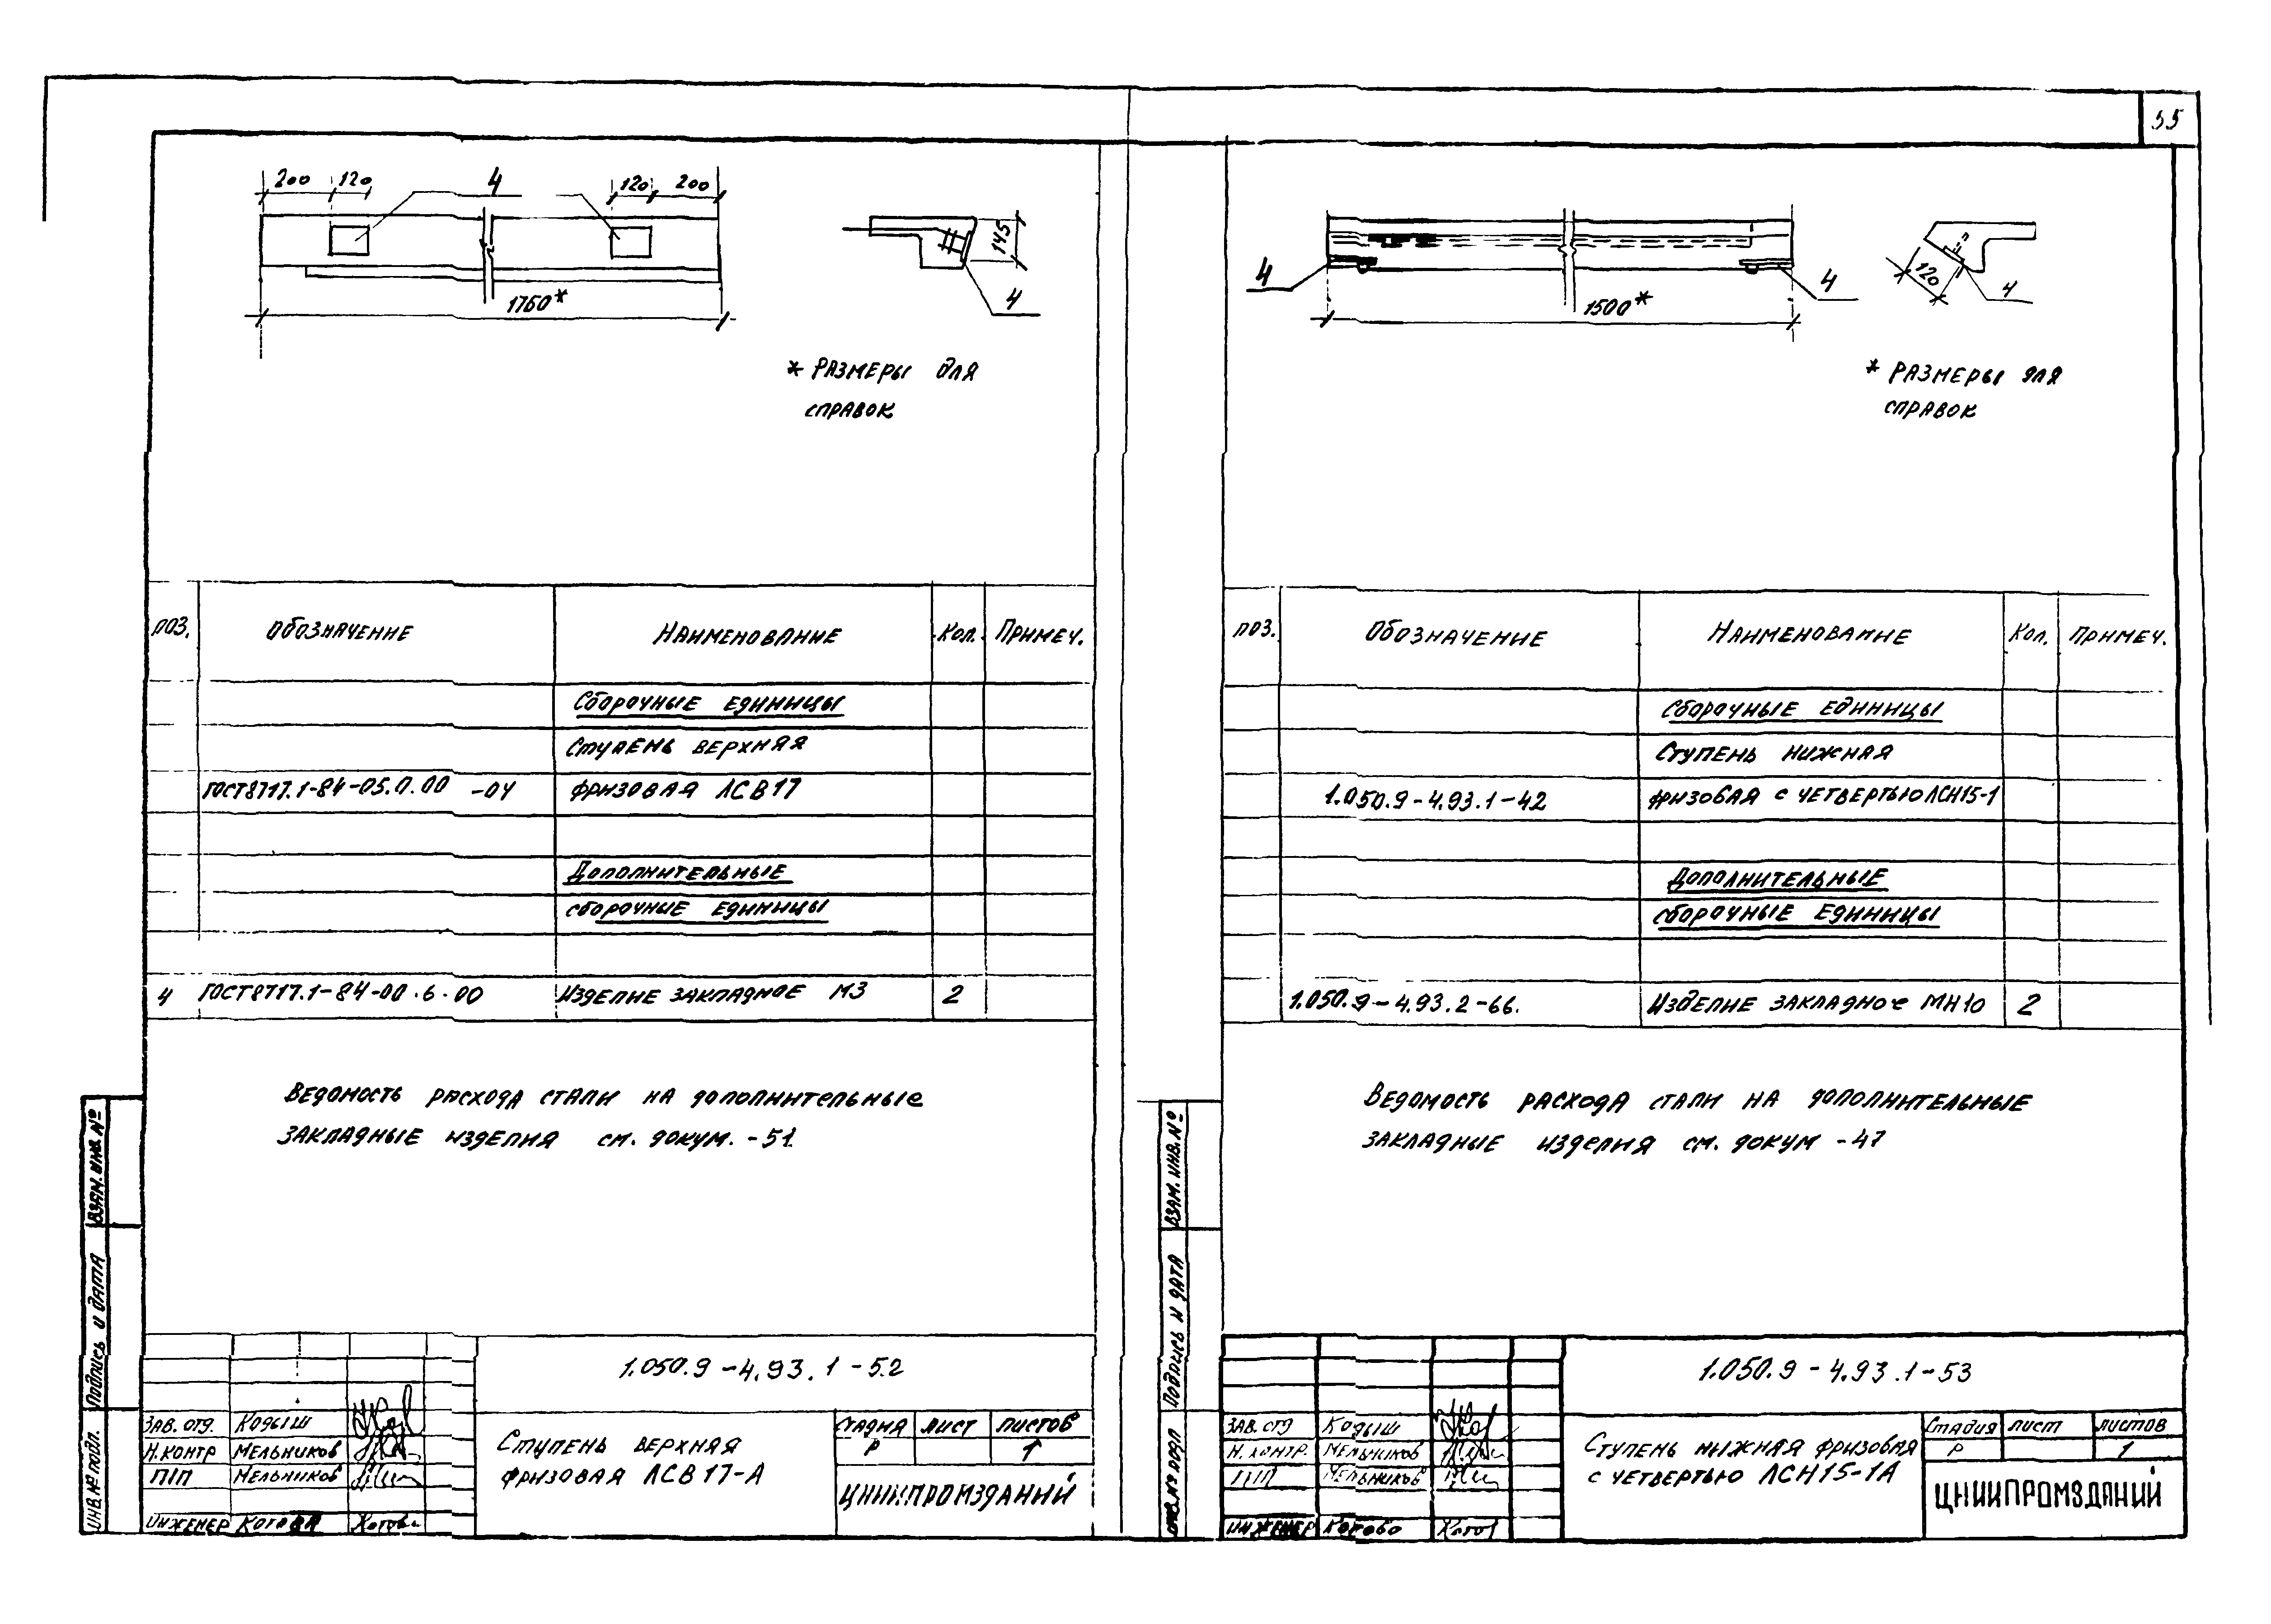 55
200 120 4 120 200
145
4
1760*
* Размеры для
справок
Поз. Обозначение Наименование Кол. Примеч.
Сборочные единицы
Ступень верхняя
ГОСТ8717.1-84-05.0.00 -04 фризовая ЛСВ17
Дополнительные
сборочные единицы
4 ГОСТ8717.1-84-00.6.00 Изделие закладное М3 2
Ведомость расхода стали на дополнительные
закладные изделия см. докум. -51
Взам. инв. №
Подпись и дата
Инв. № подл.
1.050.9-4.93.1-52
Зав. отд. Кодыш
Н.контр Мельников
ГИП Мельников
Инженер Котова
Ступень верхняя
фризовая ЛСВ17-А
Стадия Лист Листов
Р 1
ЦНИИПРОМЗДАНИЙ
4 4
1500*
120 4
* Размеры для
справок
Поз. Обозначение Наименование Кол. Примеч.
Сборочные единицы
Ступень нижняя
1.050.9-4.93.1-42 фризовая с четвертью ЛСН15-1
Дополнительные
сборочные единицы
1.050.9-4.93.2-66. Изделие закладное МН10 2
Ведомость расхода стали на дополнительные
закладные изделия см. докум -47
Взам. инв. №
Подпись и дата
Инв. № подл
1.050.9-4.93.1-53
Зав. отд Кодыш
Н. контр. Мельников
ГИП Мельников
Инженер Котова
Ступень нижняя фризовая
с четвертью ЛСН15-1А
Стадия Лист Листов
Р 1
ЦНИИПРОМЗДАНИЙ